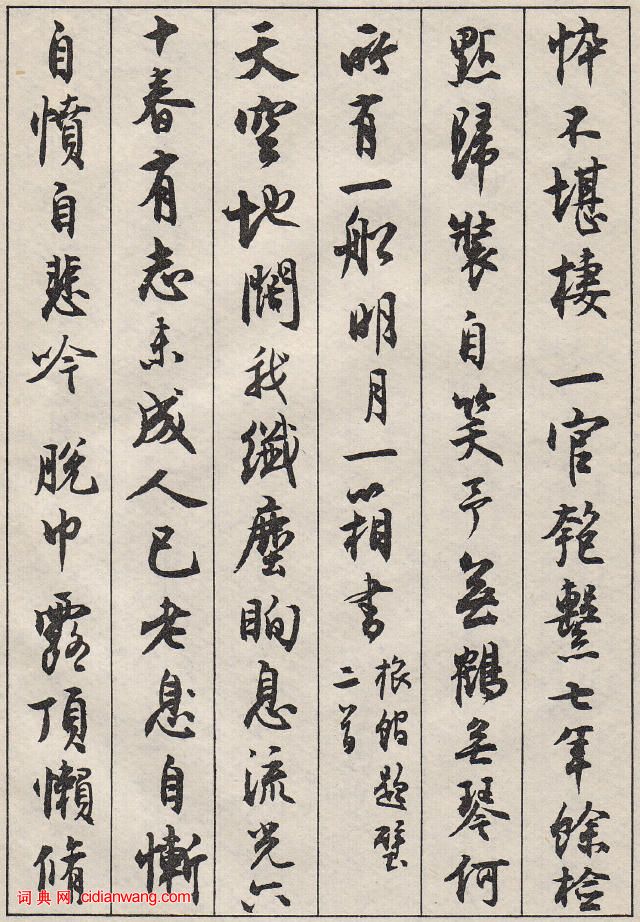 悴不堪棲一官匏繫七年餘檢
點歸裝自笑予無鶴無琴何
所有一船明月一箱書旅館題壁
二首
天空地闊我纖塵眴息流光六
十春有志未成人已老息自慚
自憤自悲吟脫巾露頂懶脩
词典网:cidianwang.com